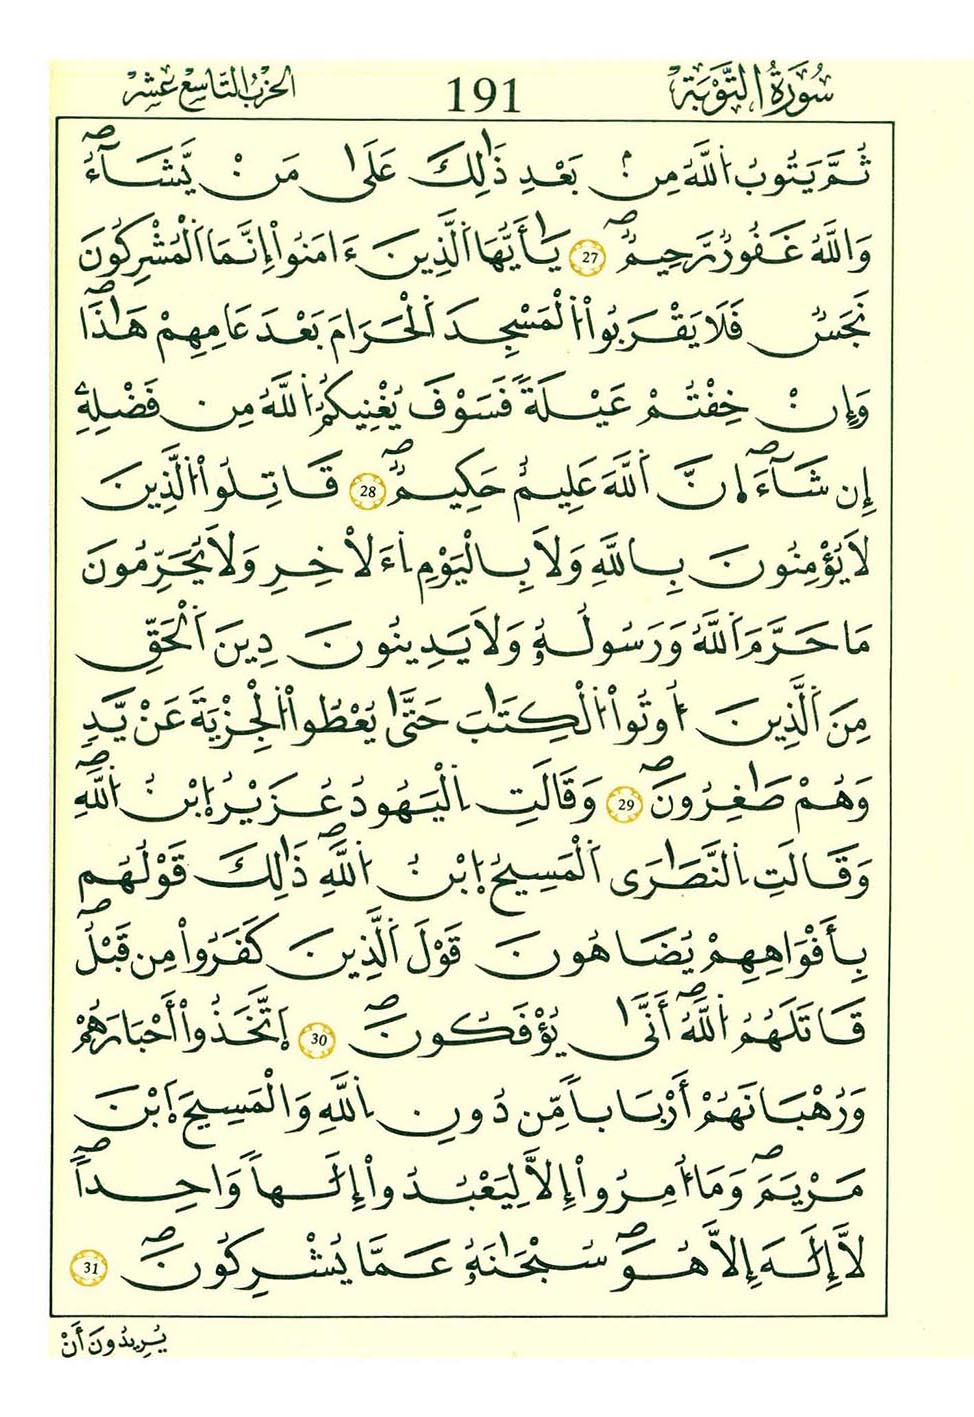 سُورَةُ التَّوْبَةِ 191 الحزب التاسع عشر
ثُمَّ يَتُوبُ اُ۬للَّهُ مِنۢ بَعْدِ ذَٰلِكَ عَلَىٰ مَنْ يَّشَآءُۖ
وَاللَّهُ غَفُورٞ رَّحِيمٞۖ 27 يَٰٓأَيُّهَا اَ۬لَّذِينَ ءَامَنُوٓاْ إِنَّمَا اَ۬لْمُشْرِكُونَ
نَجَسٞ فَلَا يَقْرَبُواْ اُ۬لْمَسْجِدَ اَ۬لْحَرَامَ بَعْدَ عَامِهِمْ هَٰذَاۖ
وَإِنْ خِفْتُمْ عَيْلَةٗ فَسَوْفَ يُغْنِيكُمُ اُ۬للَّهُ مِن فَضْلِهِۦٓ
إِن شَآءَۖ اِنَّ اَ۬للَّهَ عَلِيمٌ حَكِيمٞۖ 28 قَٰتِلُواْ اُ۬لَّذِينَ
لَا يُؤْمِنُونَ بِاللَّهِ وَلَا بِالْيَوْمِ اِ۬ءَلْأخِرِ وَلَا يُحَرِّمُونَ
مَا حَرَّمَ اَ۬للَّهُ وَرَسُولُهُۥ وَلَا يَدِينُونَ دِينَ اَ۬لْحَقِّ
مِنَ اَ۬لَّذِينَ أُوتُواْ اُ۬لْكِتَٰبَ حَتَّىٰ يُعْطُواْ اُ۬لْجِزْيَةَ عَنْ يَّدٖ
وَهُمْ صَٰغِرُونَۖ 29 وَقَالَتِ اِ۬لْيَهُودُ عُزَيْرُ اُ۪بْنُ اُ۬للَّهِۖ
وَقَالَتِ اِ۬لنَّصَٰرَى اَ۬لْمَسِيحُ اُ۪بْنُ اُ۬للَّهِۖ ذَٰلِكَ قَوْلُهُم
بِأَفْوَاهِهِمْ يُضَاهُونَ قَوْلَ اَ۬لَّذِينَ كَفَرُواْ مِن قَبْلُۖ
قَاتَلَهُمُ اُ۬للَّهُۖ أَنَّىٰ يُؤْفَكُونَۖ 30 اَ۪تَّخَذُوٓاْ أَحْبَارَهُمْ
وَرُهْبَانَهُمْ أَرْبَاباٗ مِّن دُونِ اِ۬للَّهِ وَالْمَسِيحَ اَ۪بْنَ
مَرْيَمَۖ وَمَآ أُمِرُوٓاْ إِلَّا لِيَعْبُدُوٓاْ إِلَٰهاٗ وَاحِداٗۖ
لَّآ إِلَٰهَ إِلَّا هُوَۖ سُبْحَٰنَهُۥ عَمَّا يُشْرِكُونَۖ 31
يُرِيدُونَ أَنْ